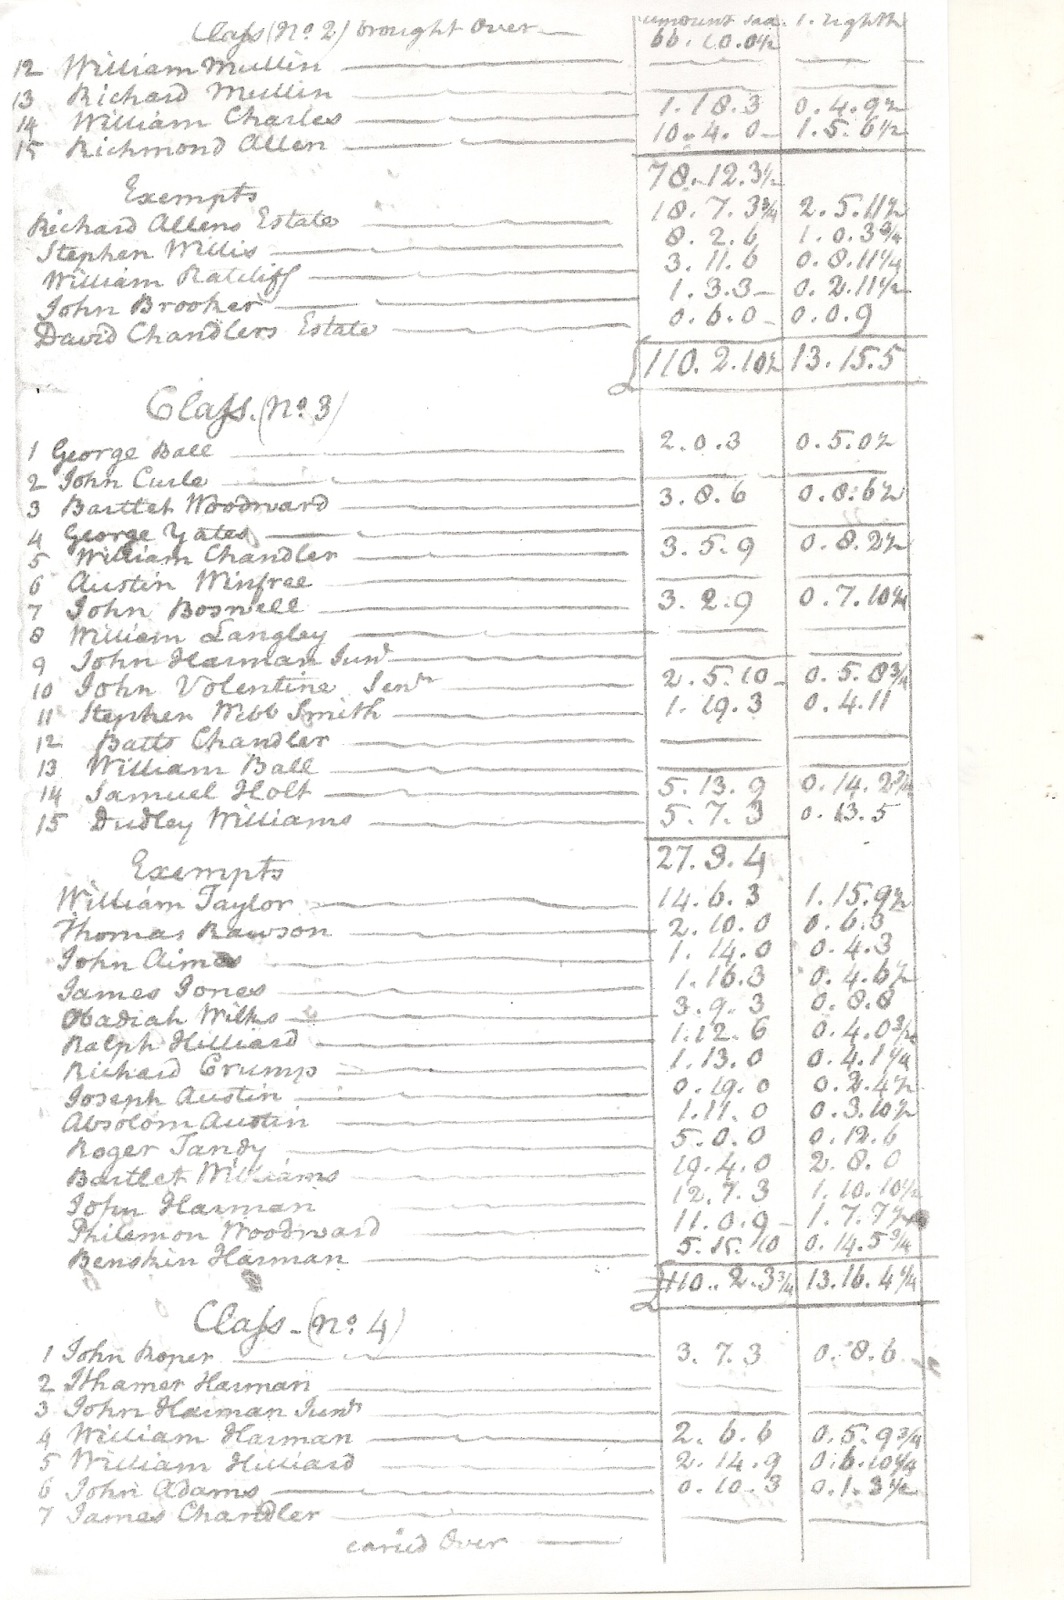 Class (No. 2) brought Over — amount Tax. 1. Eighth
66.10.0½
12 William Mullin
13 Richard Mullin
14 William Charles 1.18.3 0.4.9½
15 Richmond Allen 10.4.0 1.5.6½
78.12.3½
Exempts
Richard Allens Estate 18.7.3¾ 2.5.11½
Stephen Willis 8.2.6 1.0.3¾
William Ratcliff 3.11.6 0.8.11¼
John Brooker 1.3.3 0.2.11½
David Chandlers Estate 0.6.0 0.0.9
£110.2.10½ 13.15.5
Class. (No. 3)
1 George Ball 2.0.3 0.5.0½
2 John Curle
3 Bartlet Woodward 3.8.6 0.8.6½
4 George Yates
5 William Chandler 3.5.9 0.8.2½
6 Austin Winfree
7 John Boswell 3.2.9 0.7.10¼
8 William Langley
9 John Harman Junr
10 John Volentine Senr 2.5.10 0.5.8¾
11 Stephen Webb Smith 1.19.3 0.4.11
12 Batts Chandler
13 William Ball
14 Samuel Holt 5.13.9 0.14.2¾
15 Dudley Williams 5.7.3 0.13.5
27.3.4
Exempts
William Taylor 14.6.3 1.15.9½
Thomas Rawson 2.10.0 0.6.3
John Aimes 1.14.0 0.4.3
James Jones 1.16.3 0.4.6½
Obadiah Wilks 3.9.3 0.8.8
Ralph Hilliard 1.12.6 0.4.0¾
Richard Crump 1.13.0 0.4.1¼
Joseph Austin 0.19.0 0.2.4½
Absolom Austin 1.11.0 0.3.10½
Roger Tandy 5.0.0 0.12.6
Bartlet Williams 19.4.0 2.8.0
John Harman 12.7.3 1.10.10½
Philemon Woodward 11.0.9 1.7.7¼
Benskin Harman 5.15.10 0.14.5¾
£110.2.3¾ 13.16.4¼
Class - (No. 4)
1 John Roper 3.7.3 0.8.6
2 Ithamer Harman
3 John Harman Junr
4 William Harman 2.6.6 0.5.9¾
5 William Hilliard 2.14.9 0.6.10¼
6 John Adams 0.10.3 0.1.3½
7 James Chandler
caried Over